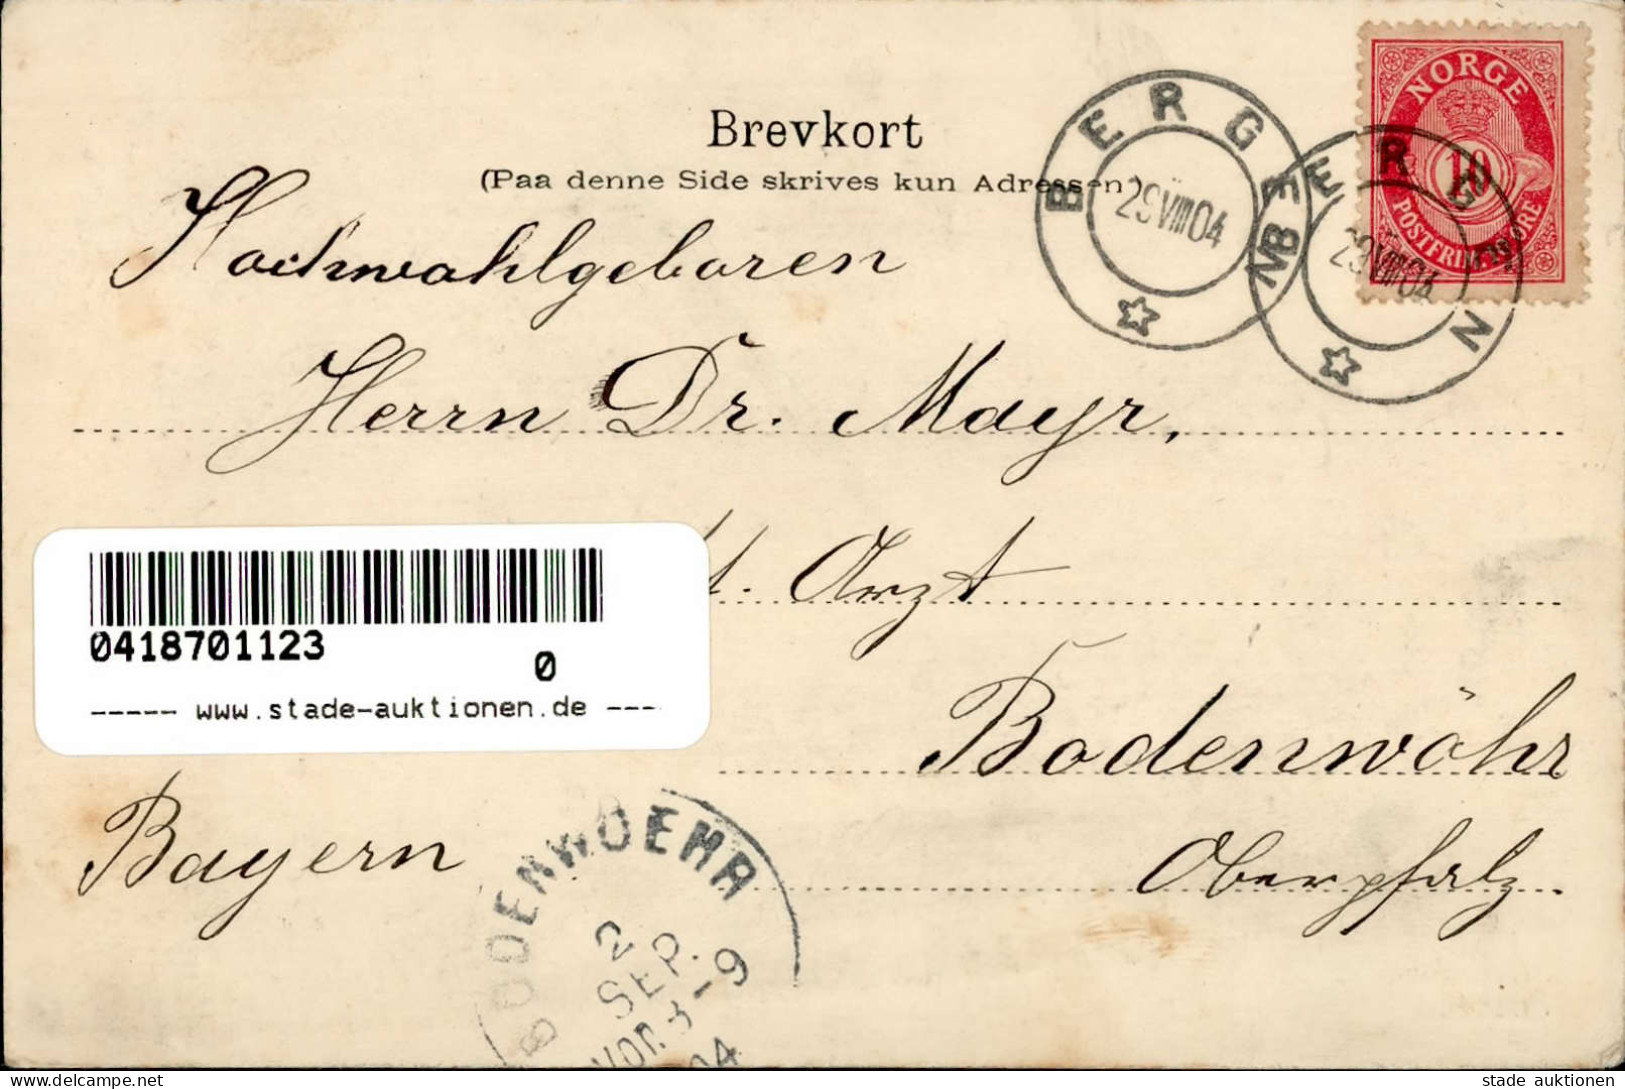 Brevkort
(Paa denne Side skrives kun Adressen)
NORGE
10
POSTFRIM
ØRE
BERGEN
29 VIII 04
BERGEN
29 VIII 04
Hochwohlgeboren
Herrn Dr. Mayr,
Arzt
Bodenwöhr
Oberpfalz.
Bayern
0418701123
0
----- www.stade-auktionen.de ---
BODENWOEHR
2
SEP.
VOR. 8-9
04
stade auktionen
delcampe.net